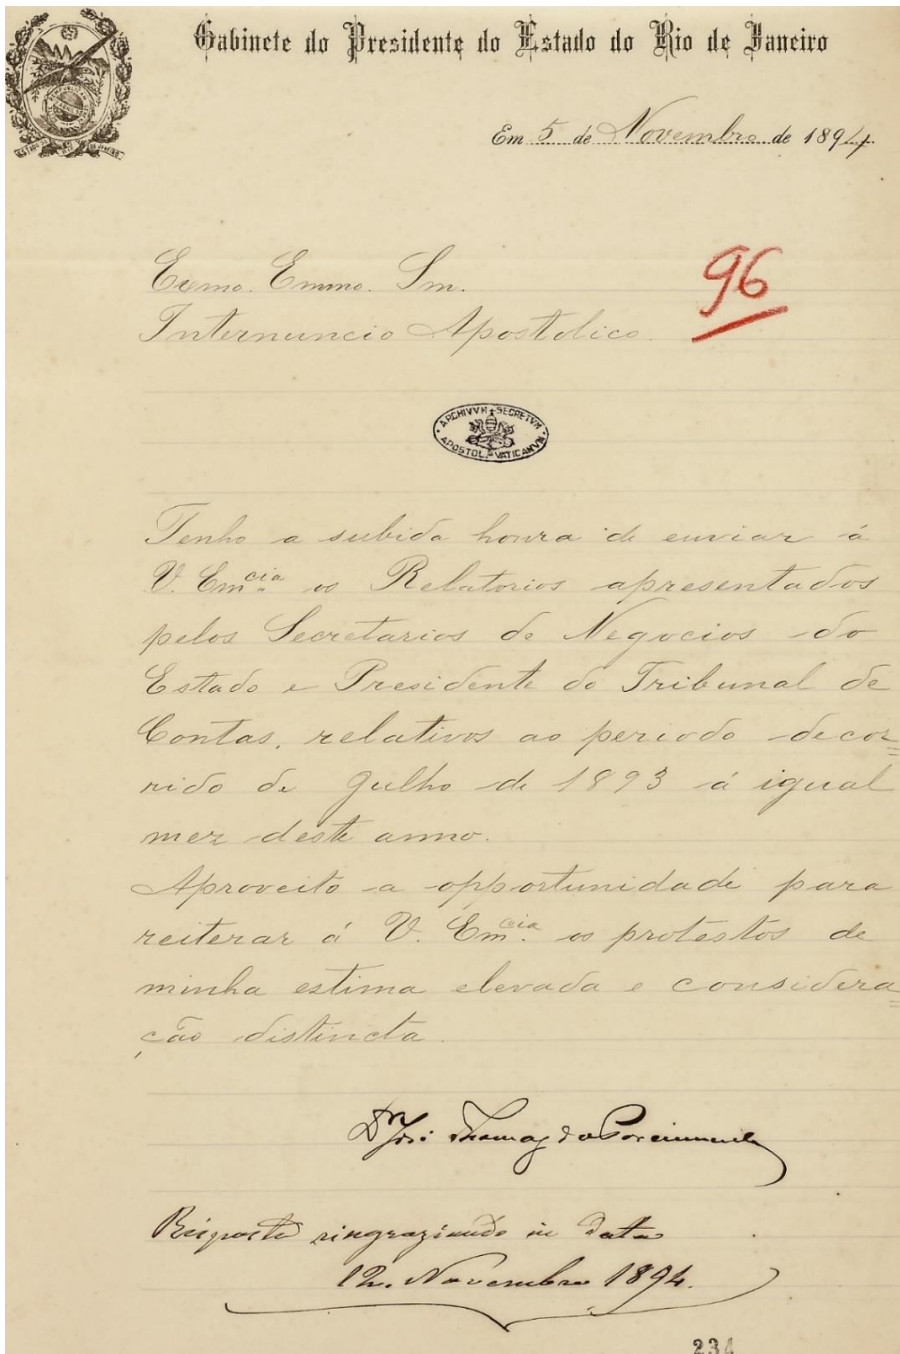 Gabinete do Presidente do Estado do Rio de Janeiro
Em 5 de Novembro de 1894
96
Exmo. Emmo. Snr.
Internuncio Apostolico.
ARCHIVVM SECRETVM
APOSTOL. VATICANVM
Tenho a subida honra de enviar á
V. Em.cia os Relatorios apresentados
pelos Secretarios de Negocios do
Estado e Presidente do Tribunal de
Contas, relativos ao periodo decor=
rido de Julho de 1893 á igual
mez deste anno.
Aproveito a opportunidade para
reiterar á V. Em.cia os protestos de
minha estima elevada e considera=
ção distincta.
Dr José Thomaz da Porciuncula
Risposto ringraziando in data
12. Novembre 1894.
234